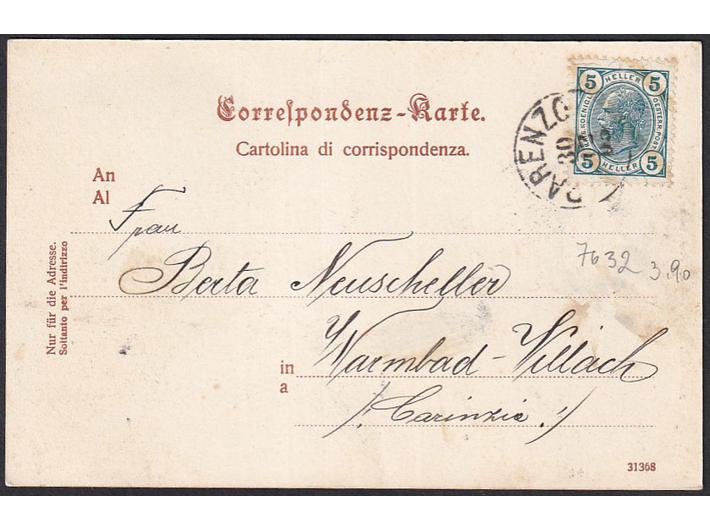 Correspondenz-Karte.
Cartolina di corrispondenza.
5 HELLER 5
KAIS. KOENIGL. OESTERR. POST
5 HELLER 5
PARENZO
30
An
Al
Frau
Berta Neuscheller
in Warmbad-Villach
a
/: Carinzia :/
Nur für die Adresse.
Soltanto per l'indirizzo
7632 3.90
31368